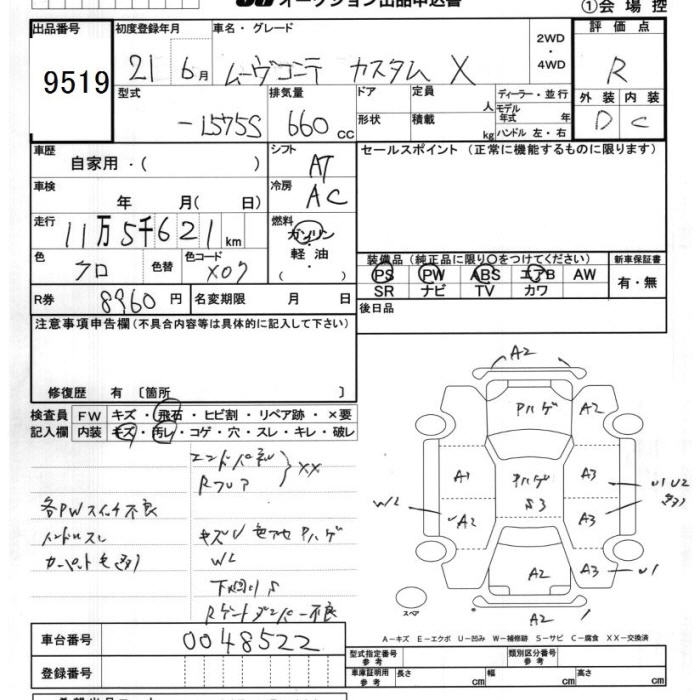 オークション出品申込書
①会場控
出品番号 9519
初度登録年月 21 6月
車名・グレード ムーヴコンテ カスタム X
2WD・4WD
評価点 R
外装 D 内装 C
型式 -L575S
排気量 660 cc
ドア 形状
定員 人
積載 kg
ディーラー・並行
モデル年式 年
ハンドル 左・右
車歴 自家用・( )
シフト AT
セールスポイント (正常に機能するものに限ります)
車検 年 月( 日)
冷房 AC
走行 11万5千621 km
燃料 ガソリン・軽油 ( )
色 クロ 色替 色コード X07
装備品 (純正品に限り○をつけてください)
PS PW ABS エアB AW
SR ナビ TV カワ
新車保証書 有・無
R券 8960円 名変期限 月 日
後日品
注意事項申告欄(不具合内容等は具体的に記入して下さい)
修復歴 有〔箇所 〕
検査員記入欄 FW キズ・飛石・ヒビ割・リペア跡・×要
内装 キズ・汚レ・コゲ・穴・スレ・キレ・破レ
Rフロア
XX
各PWスイッチ不良
ハンドルスレ
キズU 色アセ Pハゲ
W2
下回りS
Rゲートダンパー不良
A2
Pハゲ
A2
A1
Pハゲ
S3
A3
U1 U2
W2
A2
A3
A2
A3
U1
A2
スペア
A-キズ E-エクボ U-凹み W-補修跡 S-サビ C-腐食 XX-交換済
車台番号 0048522
型式指定番号 参考
類別区分番号 参考
登録番号
車庫証明用 参考 長さ cm 幅 cm 高さ cm